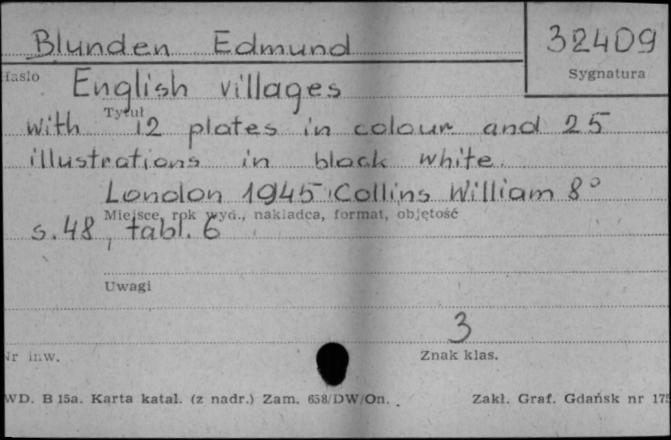 Blunden Edmund
32409
Hasło
Sygnatura
English villages
Tytuł
with 12 plates in colour and 25
illustrations in black white.
London 1945 Collins William 8°
Miejsce, rok wyd., nakładca, format, objętość
s. 48, tabl. 6
Uwagi
3
Nr inw.
Znak klas.
WD. B 15a. Karta katal. (z nadr.) Zam. 658/DW/On.
Zakł. Graf. Gdańsk nr 175